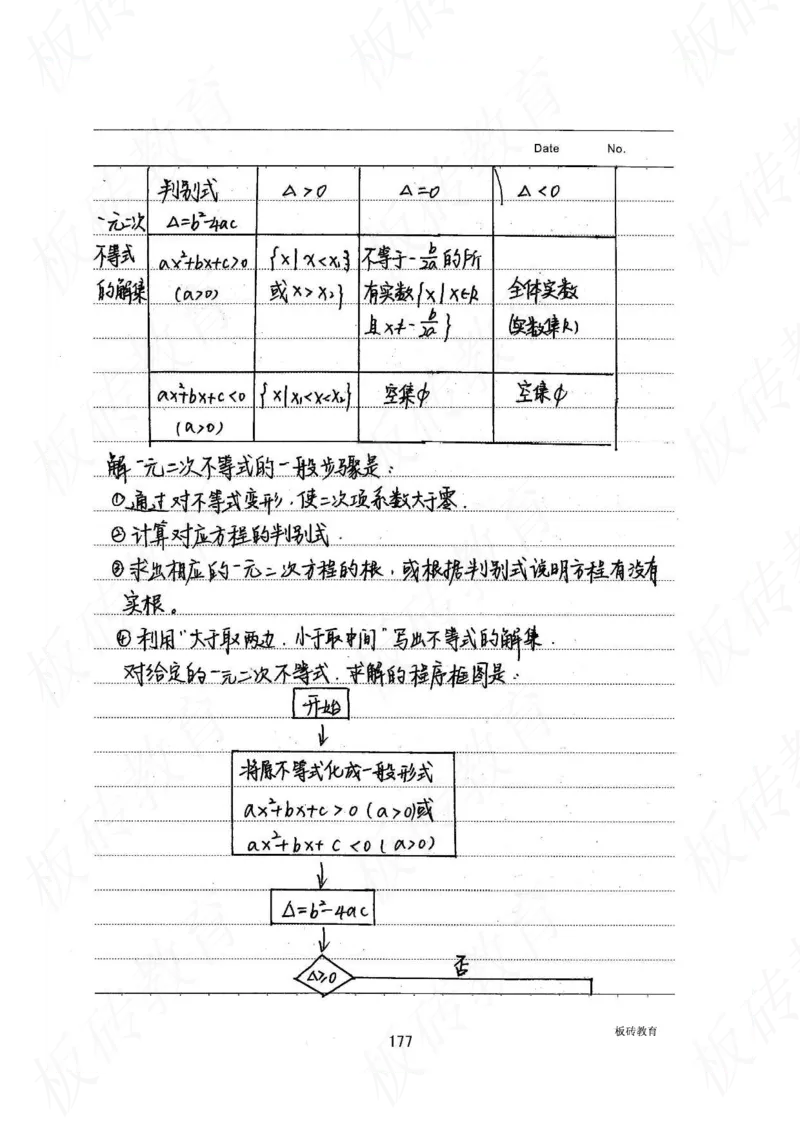 Date No.
判别式 Δ>0 Δ=0 Δ<0
Δ=b²-4ac
一元二次
不等式
的解集
ax²+bx+c>0 {x|x<x₁} 不等于-b/2a的所
(a>0) 或x>x₂} 有实数{x|x∈R 全体实数
且x≠-b/2a} (实数集R)
ax²+bx+c<0 {x|x₁<x<x₂} 空集φ 空集φ
(a>0)
解一元二次不等式的一般步骤是:
①通过对不等式变形,使二次项系数大于零.
②计算对应方程的判别式.
③求出相应的一元二次方程的根,或根据判别式说明方程有没有
实根。
④利用"大于取两边,小于取中间"写出不等式的解集.
对给定的一元二次不等式,求解的程序框图是:
开始
将原不等式化成一般形式
ax²+bx+c>0(a>0)或
ax²+bx+c<0(a>0)
Δ=b²-4ac
Δ≥0 否
板砖教育
177